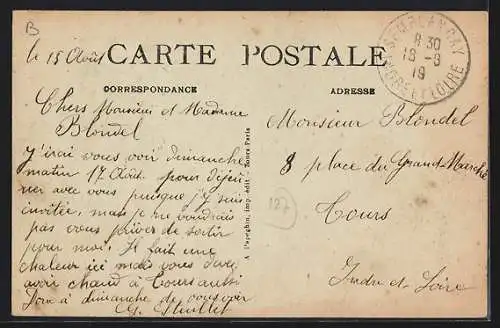 B
le 15 Août
CARTE POSTALE
CORRESPONDANCE
ADRESSE
SEMBLANÇAY
8 30
16 -8
19
INDRE ET LOIRE
Chers Monsieur et Madame
Blondel
J'irai vous voir dimanche
matin 17 Août pour déjeu
ner avec vous puisque j'y suis
invitée, mais je ne voudrais
pas vous priver de sortir
pour moi. Il fait une
chaleur ici mais vous devez
avoir chaud à Tours aussi
à dimanche de vous voir
G.
A Papeghin, imp.-édit. - Tours-Paris
Monsieur Blondel
8 place du Grand-Marché
127
Tours
Indre et Loire